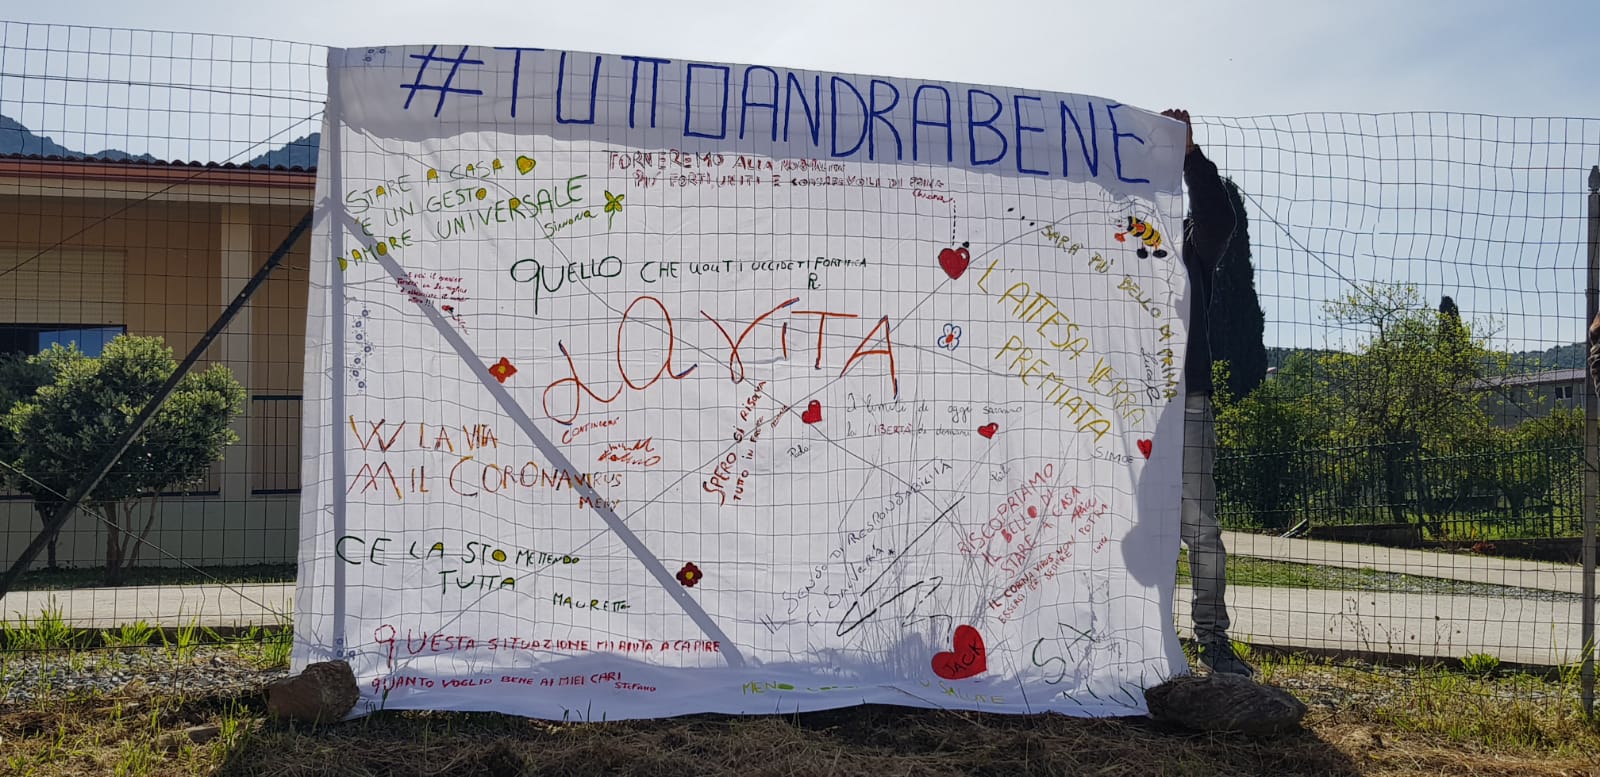 #TUTTOANDRABENE
STARE A CASA
È UN GESTO
D'AMORE UNIVERSALE
Simona
TORNEREMO ALLA
PIÙ FORTI, UNITI E CONSAPEVOLI DI PRIMA
Chiara
SARA' PIÙ BELLO DI PRIMA
QUELLO CHE NON TI UCCIDE TI FORTIFICA
R
L'ATTESA VERRA
PREMIATA
SIMOE
LA VITA
CONTINUERÀ
W LA VITA
M IL CORONAVIRUS
MERY
SPERO SI RISOLVA
TUTTO IN
I limiti di oggi saranno
la LIBERTÀ di domani
IL SENSO DI RESPONSABILITÀ
CI SALVERÀ
RISCOPRIAMO
IL BELLO DI
STARE A CASA
IL CORONAVIRUS NON POTRÀ
ESSERCI PER SEMPRE
LUIGI
CE LA STO METTENDO
TUTTA
MAURETTO
QUESTA SITUAZIONE MI AIUTA A CAPIRE
QUANTO VOGLIO BENE AI MIEI CARI
STEFANO
JACK
MENO
SALUTE